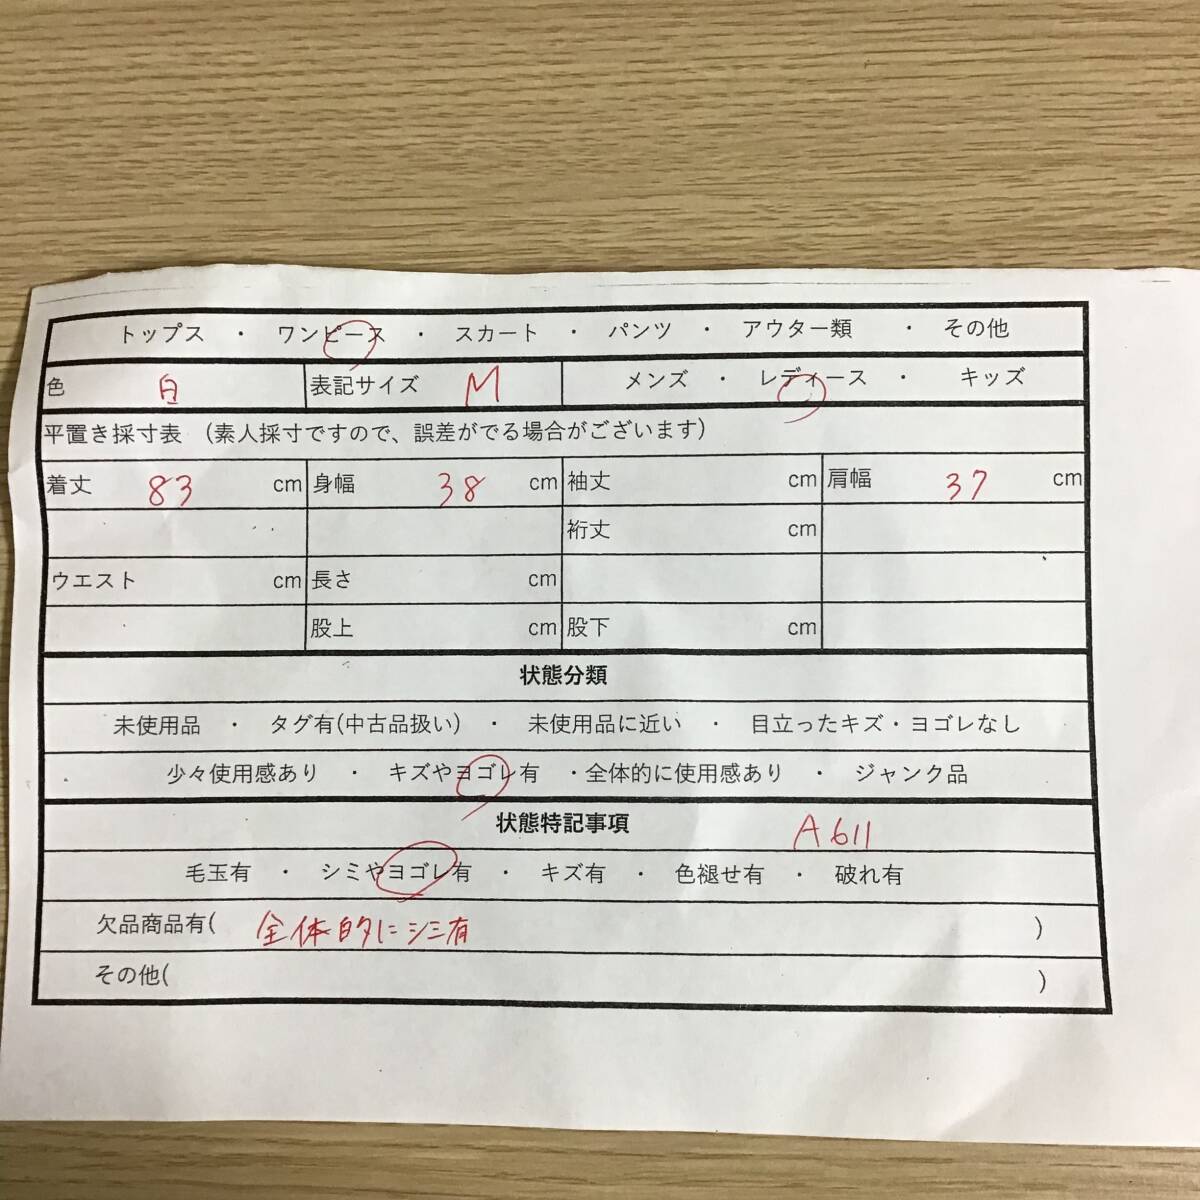 トップス ・ ワンピース ・ スカート ・ パンツ ・ アウター類 ・ その他
色 白 表記サイズ M メンズ ・ レディース ・ キッズ
平置き採寸表 (素人採寸ですので、誤差がでる場合がございます)
着丈 83 cm 身幅 38 cm 袖丈 cm 肩幅 37 cm
裄丈 cm
ウエスト cm 長さ cm
股上 cm 股下 cm
状態分類
未使用品 ・ タグ有(中古品扱い) ・ 未使用品に近い ・ 目立ったキズ・ヨゴレなし
少々使用感あり ・ キズやヨゴレ有 ・全体的に使用感あり ・ ジャンク品
状態特記事項 A611
毛玉有 ・ シミやヨゴレ有 ・ キズ有 ・ 色褪せ有 ・ 破れ有
欠品商品有( 全体的にシミ有 )
その他( )